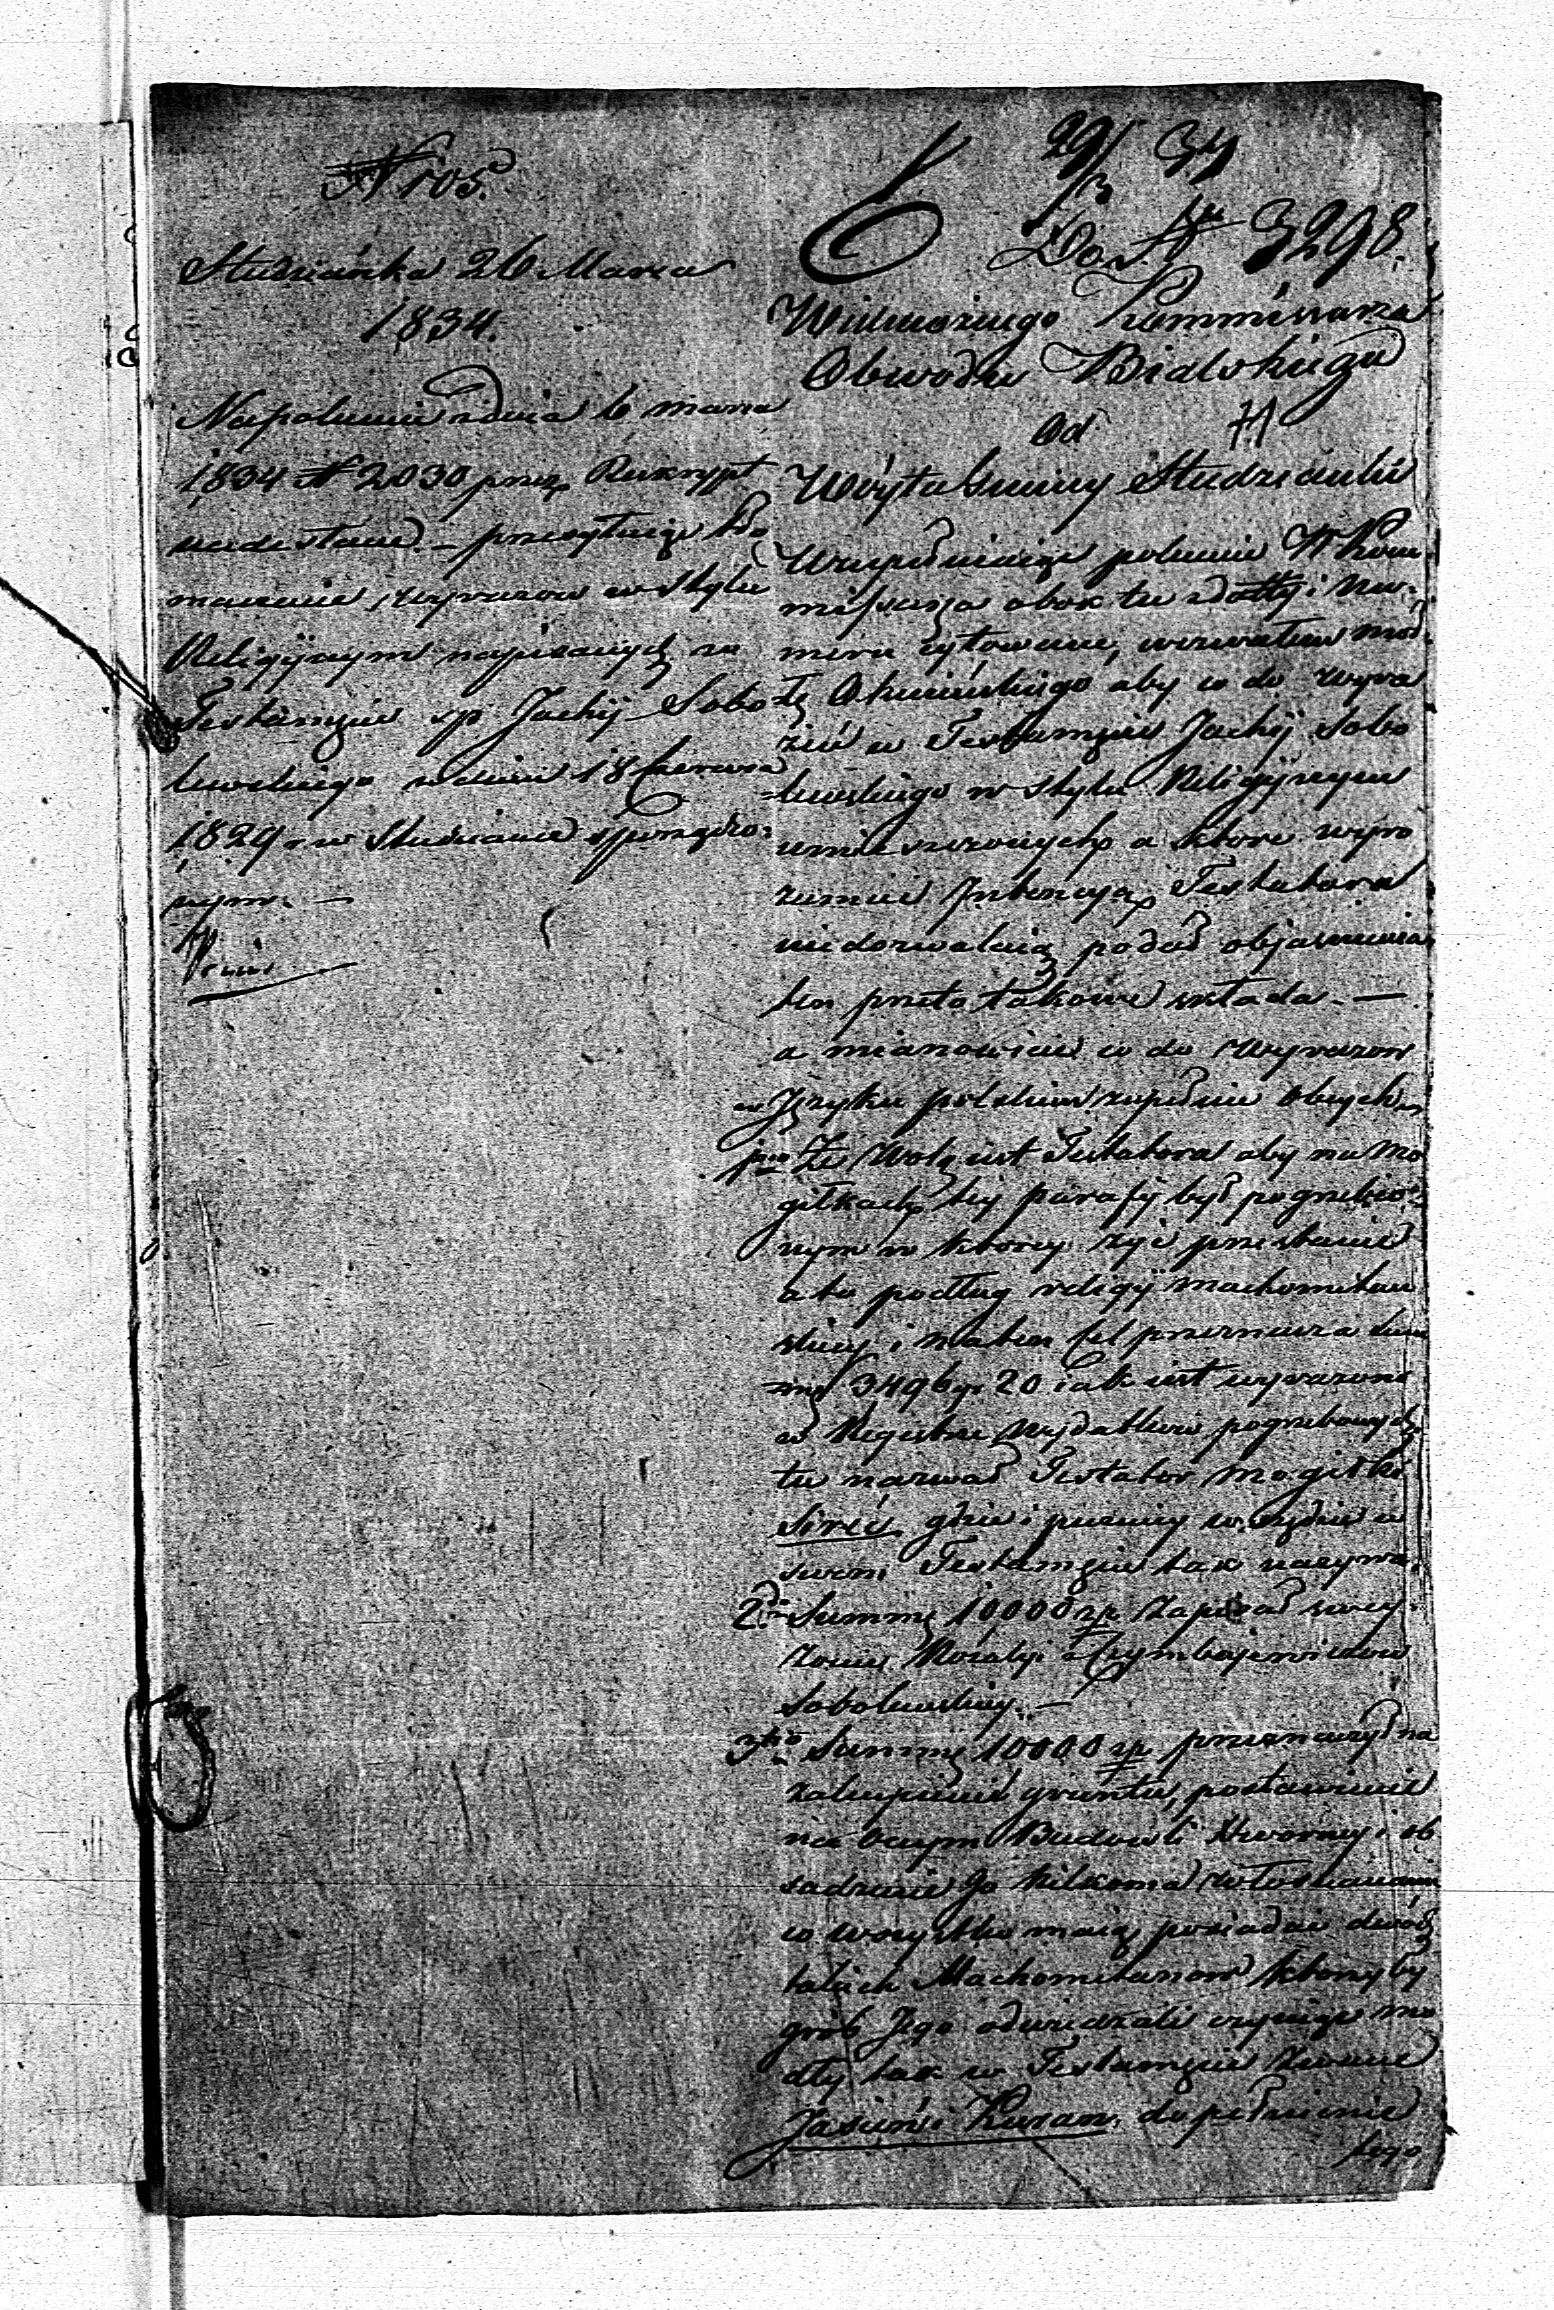 N 105.
Studzianka 26 Marca
1834.
Na polecenie z dnia 6 marca
1834 N 2030 przez Reskrypt
nadesłane. – przesyłaiąc tło
maczenie wyrazow w stylu
Religijnym napisanych na
Testamęcie sp Jachij Sobo
lewskiego w dniu 18 Czerwca
1829 r w Studziance sporządzo-
nym. –
29/3 34
Do N 3298.
Wielmożnego Kommissarza
Obwodu Bialskiego
Od
Wóyta Gminy Studzianki
Uzupełniaiąc polecenie W Kom-
missarza obok tu z datty i nu-
meru cytowane, wezwałem Moł-
łę Okmińskiego aby co do wyra
zów w Testamęcie Jachij Sobo
lewskiego w stylu Religijnym
umieszczonych a ktore wyro
zumieć Intencyą Testatora
niedozwalaią podał objasnienia,
ten przeto takowe składa. –
a mianowicie co do Wyrazow
w Ięzyku polskim zupełnie obcych
1mo Ze Wolą iest Testatora aby na Mo
giłkach tej parafij był pogrzebio-
nym w ktorey żyć przestanie
a to podług religij machometań
skiey i na ten cel przeznacza Sum
mę 3496 gr 20 iak iest wyrażone
w Regestrze Wydatków pogrzebowych
tu nazwał Testator mogiłki
Sirec gdzie i pierwey wszędzie w
swem Testamęcie tak nazywa.
2do Summę 10000 zp Zapisał swey
żonie Rozalij z Czymbajewiczow
Sobolewskiey. –
3tio Summę 10000 zp przeznaczył na
zakupienie gruntu, postawienie
na onym Budowli Dworney i ob
sadzenie Jo kilkoma włoscianami
co wszystko maią posiadać dwóch
takich Machometanow ktorzyby
grob Jego odwiedzali czyniąc mo
dły tak w Testamęcie zwane
Jasień i Kuran. dopełnienie
tego